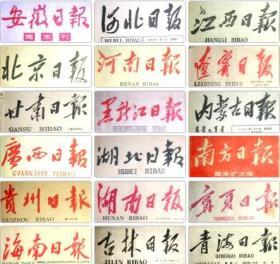 安徽日报
周末刊
河北日报
HEBEI RIBAO
江西日报
JIANGXI RIBAO
北京日报
河南日报
HENAN RIBAO
辽宁日报
LIAONING RIBAO
甘肃日报
GANSU RIBAO
黑龙江日报
内蒙古日报
廣西日報
GVANGJSIH YIZBAU
湖北日报
HUBEI RIBAO
南方日报
周末扩大版
贵州日报
GUIZHOU RIBAO
湖南日报
HUNAN RIBAO
宁夏日报
NINGXIA RIBAO
海南日报
HAINAN RIBAO
吉林日报
JILIN RIBAO
青海日报
QINGHAI RIBAO